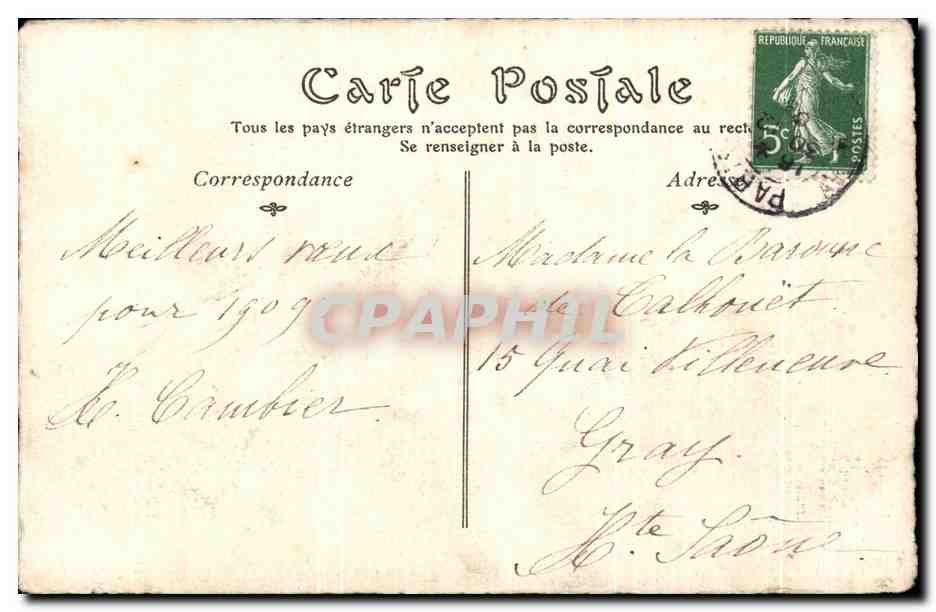 Carte Postale
Tous les pays étrangers n'acceptent pas la correspondance au recto
Se renseigner à la poste.
REPUBLIQUE FRANÇAISE
5c
POSTES
PAR
Correspondance
Meilleurs vœux
pour 1909
H. Cambier
Adresse
Madame la Baronne
de Calhouët
15 Quai Villeneuve
Gray
Hte Saône
CPAPHIL